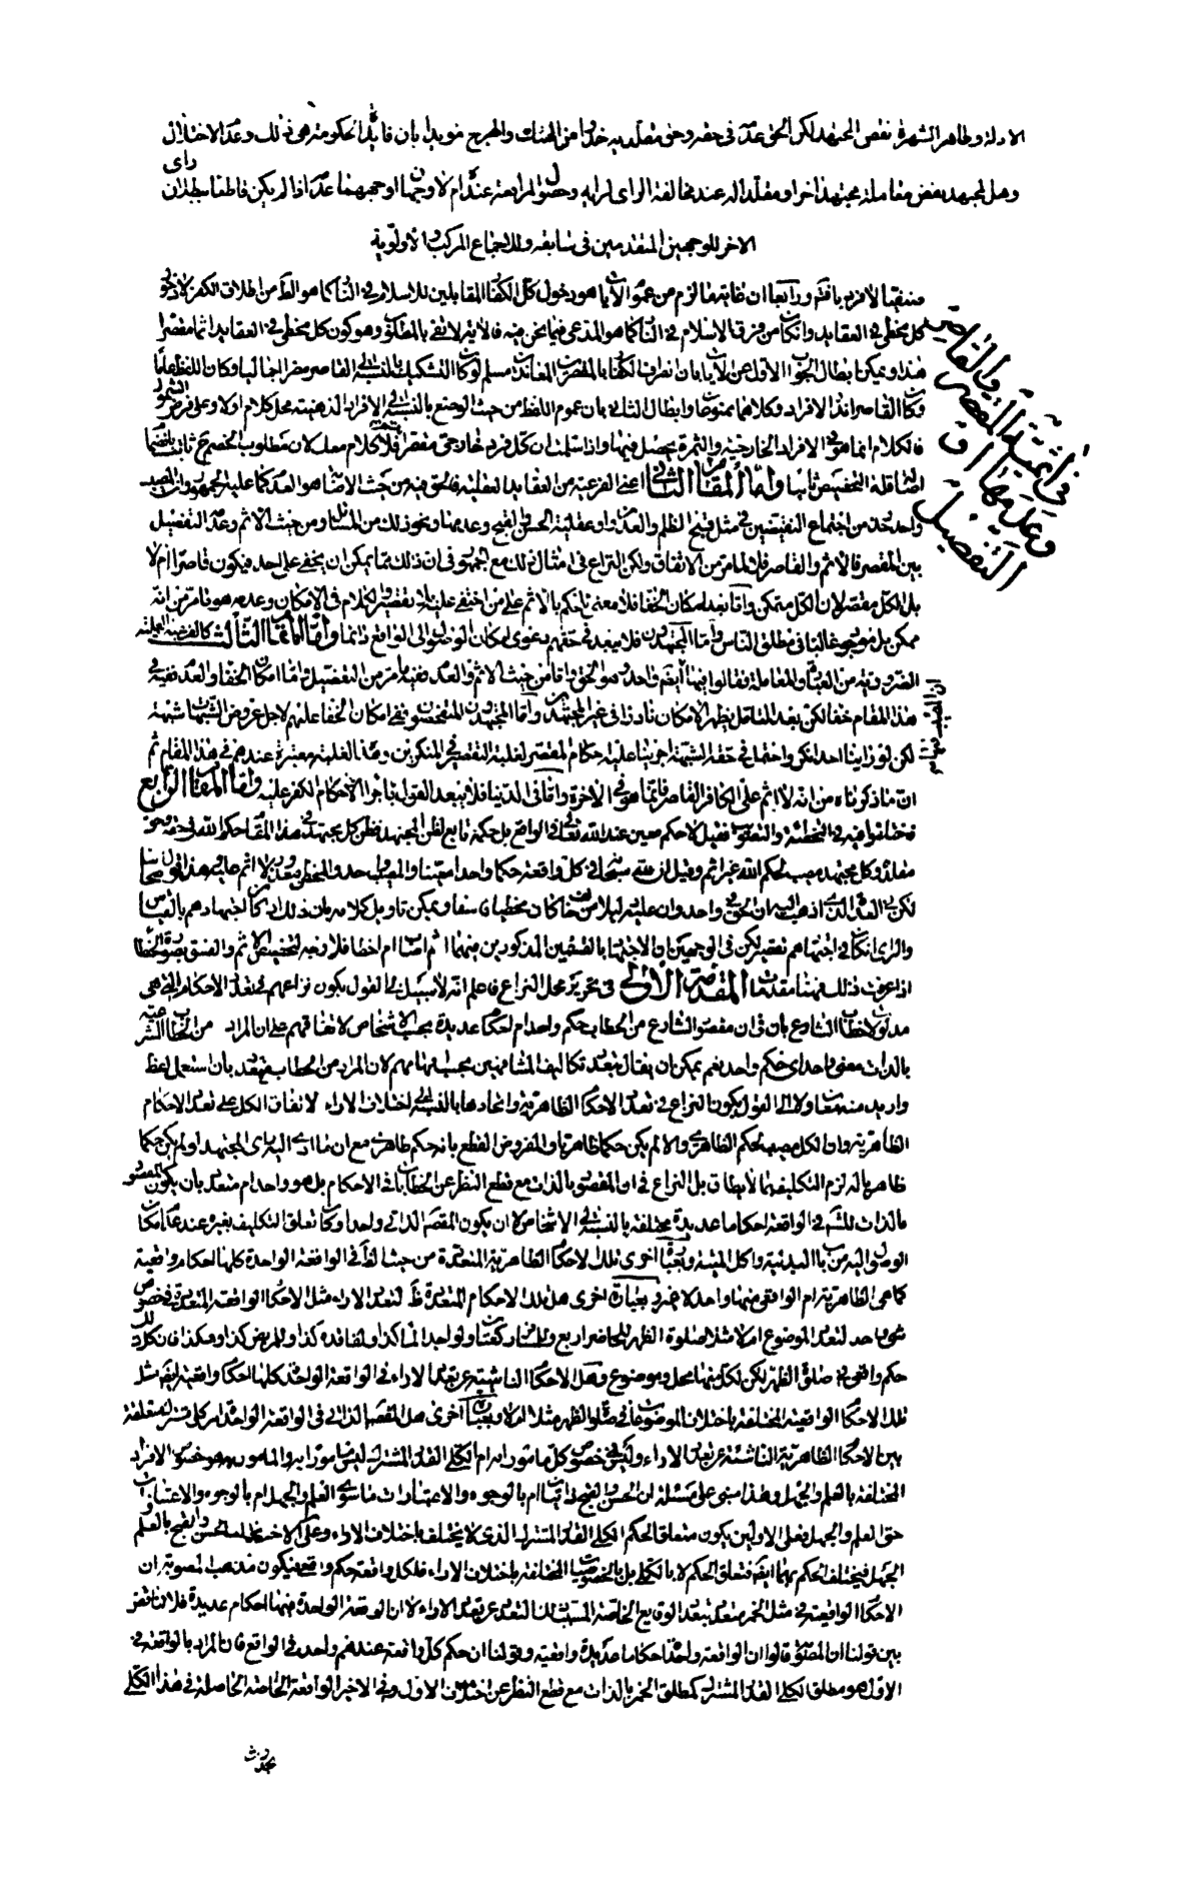 الادلة وظاهر الشهرة نقض المجتهد لكن الحق عدمه في حقه وحق مقلديه من الهتك والهرج مؤيدا بان فائدة الحكومة هي ذلك وعدم الاختلال
وهل لمجتهد نقض معاملة مجتهد اخر او مقلد له عند مخالفة الراى لرايه وحصول المرافعة عنده ام لا وجهان اوجههما عدمه اذا لم يكن قاطعا ببطلان راى
الاخر للوجهين المتقدمين في سابقه وللاجماع المركب والاولوية
كل مخطئ في العقايد وان كان من فرق الاسلام في النار كما هو المدعى فيما نحن فيه فالاية لا تفي بالمطلوب وهو كون كل مخطئ في العقايد اثما مقصرا
هذا ويمكن ابطال الجواب الاول عن الايات بان انصراف الكفار بالمقصرين المعاندين مسلم لو كان التشكيك بالنسبة الى القاصر مضرا اجماليا وكان اللفظ عاما
وكان القاصر اندر الافراد وكلاهما ممنوعان وابطال الثاني بان عموم اللفظ من حيث الوضع بالنسبة الى الافراد الذهنية محل كلام اولا وعلى فرض الشمول
فالكلام انما هو في الافراد الخارجية والثمرة يحصل فيها واذا سلمت ان كل فرد خارجي مقصر فلا كلام معك لان مطلوب الخصم ح ثابت
اصالة قلة التخصيص ثانيا واما المقام الثاني اعني الفرعية من العقايد العقلية فالحق فيه من حيث الاصابة هو العدم كما عليه الجمهور
واحد بحذر من اجتماع النقيضين في مثل قبح الظلم والعدل او عقلية الحسن والقبح وعدمها ونحو ذلك من المسائل ومن حيث الاثم وعدمه التفصيل
بين المقصر فالاثم والقاصر فلا لما مر من الاتفاق ولكن النزاع في امثال ذلك مع الجمهور في ان ذلك مما يمكن ان يخفى على احد فيكون قاصرا ام لا
بل الكل مقصر لان الكل متمكن واما بعد امكان الخفاء فلا معنى للحكم بالاثم على من اختفى عليه بلا تقصير والكلام في الامكان وعدمه هو ما مر من انه
ممكن بل موجود غالبا في مطلق الناس واما المجتهدون فلا يبعد في حقهم دعوى امكان الوصول الى الواقع دائما واما المقام الثالث كالفرعية العملية
الضرورية من العبادة والمعاملة فقالوا فيها ايضا واحد وهو الحق واما من حيث الاثم والعدم ففيه ما مر من التفصيل واما امكان الخفاء والعدم ففيه في
هذا المقام خفاء لكن بعد التامل يظهر الامكان نادرا في غير المجتهدين واما المجتهدون المتفحصون ففي امكان الخفاء عليهم لاجل عروض الشبهات شبهة
لكن لو راينا احدا انكر واحتمل في حقه الشبهة اجرينا عليه احكام المقصر لغلبة التقصير في المنكرين وهذه الغلبة معتبرة عندهم في هذا المقام ثم
ان ما ذكرناه من انه لا اثم على الكافر القاصر فانما هو في الاخرة واما في الدنيا فلا يبعد القول باجراء الاحكام الكفر عليه واما المقام الرابع
فخالفوا فيه في التخطئة والتصويب فقيل لا حكم معين عند الله تعالى في الواقع بل حكمه تابع لظن المجتهد فظن كل مجتهد في هذا المقام حكم الله في حقه وحق
مقلده وكل مجتهد مصيب لحكم الله غير اثم وقيل ان لله سبحانه في كل واقعة حكما واحدا معينا والمصيب واحد والمخطئ معذور لا اثم عليه
لكن في العدة الذي اذهب اليه ان الحق في واحد وان عليه دليلا من خالفه كان مخطيا فاسقا ويمكن تاويل كلامه بان ذلك اذا كان اجتهادهم بالقياس
والراى
اذا عرفت ذلك فهنا مقدمات المقدمة الاولى في تحرير محل النزاع فاعلم انه لا سبيل الى القول بكون نزاعهم في تعدد الاحكام التي هي
مدلولا لخطاب الشارع بان في ان مقصود الشارع من الخطاب حكم واحد ام احكام عديدة بحسب الاشخاص لاتفاقهم على ان المراد من الخطابات الشرعية
بالذات معنى واحد اي حكم واحد نعم يمكن ان يقال بتعدد تكاليف المشافهين بحسب افهامهم لان المراد من الخطاب متعدد بان استعمل لفظ
واريد منه معان ولا الى القول بكون النزاع في تعدد الاحكام الظاهرية واتحادها بالنسبة الى اختلاف الاراء لاتفاق الكل على تعدد الاحكام
الظاهرية وان الكل مصيب لحكم الظاهري والا لم يكن حكما ظاهريا والمفروض القطع بانه حكم ظاهري مع ان ما ادى اليه راى المجتهد لو لم يكن حكما
ظاهريا له لزم التكليف بما لا يطاق بل النزاع في ان المقصود بالذات مع قطع النظر عن الخطابات في الاحكام هل هو واحد ام متعدد بان يكون المقصود
بالذات للشارع في الواقعة احكاما عديدة مختلفة بالنسبة الى الاشخاص لا ان يكون المقصد الذاتي واحدا وكان تعلق التكليف بغيره عند عدم امكان
الوصول اليه من باب البدلية واكل الميتة وبعبارة اخرى تلك الاحكام الظاهرية المتعددة من حيث الراى في الواقعة الواحدة كلها احكام واقعية
كما هي الظاهرية ام الواقعي منها واحد لا غير وبعبارة اخرى هل تلك الاحكام المتعددة لتعدد الاراء مثل الاحكام الواقعية المتعددة في خصوص
شيء واحد لتعدد الموضوع ام لا مثلا صلوة الظهر للحاضر اربع وللمسافر ركعتان ولواجد الماء كذا ولفاقده كذا وللمريض كذا وهكذا فان كل ذلك
حكم واقعي في صلوة الظهر لكن لكل منها محل وموضوع وهل الاحكام الناشئة عن تعدد الاراء في الواقعة الواحدة كلها احكام واقعية ايضا مثل
تلك الاحكام الواقعية المختلفة باختلاف الموضوعات في صلوة الظهر مثلا ام لا وبعبارة اخرى هل المقصد الذاتي في الواقعة الواحدة امر كلي مشترك متعلقة
بين الاحكام الظاهرية الناشئة عن تعدد الاراء وليس في خصوص كل مامورا به ام الكلي القدر المشترك ليس مامورا به والمامور به هو خصوص الافراد
المختلفة بالعلم والجهل وهذا مبني على مسئلة ان الحسن والقبح ذاتيان ام بالوجوه والاعتبارات ما سوى العلم والجهل ام بالوجوه والاعتبارات
حتى العلم والجهل فعلى الاولين يكون متعلق الحكم الكلي القدر المشترك الذي لا يختلف باختلاف الاراء وعلى الاخير يختلف الحسن والقبح بالعلم و
الجهل فيختلف الحكم بهما ايضا فمتعلق الحكم لا بالكلي بل بالخصوصيات المختلفة باختلاف الاراء فلكل واقعة حكم واقعي فيكون مذهب المصوبة ان
الاحكام الواقعية في مثل الخمر متعدد بتعدد الوقايع الخاصة المسبب ذلك التعدد عن تعدد الاراء لا ان الواقعة الواحدة فيها احكام عديدة فلا تناقض
بين قولنا ان المصوبة قالوا ان الواقعة واحدة احكاما عديدة واقعية وقولنا ان حكم كل واقعة عندهم واحد في الواقع فان المراد بالواقعة في
الاول هو مطلق الكلي القدر المشترك كمطلق الخمر بالذات مع قطع النظر عن اختلاف الاول وفي الاخير الواقعة الخاصة الحاصلة في هذا الكلي
في اثمية المقصر والقاصر
وعدمها او
التفصيل